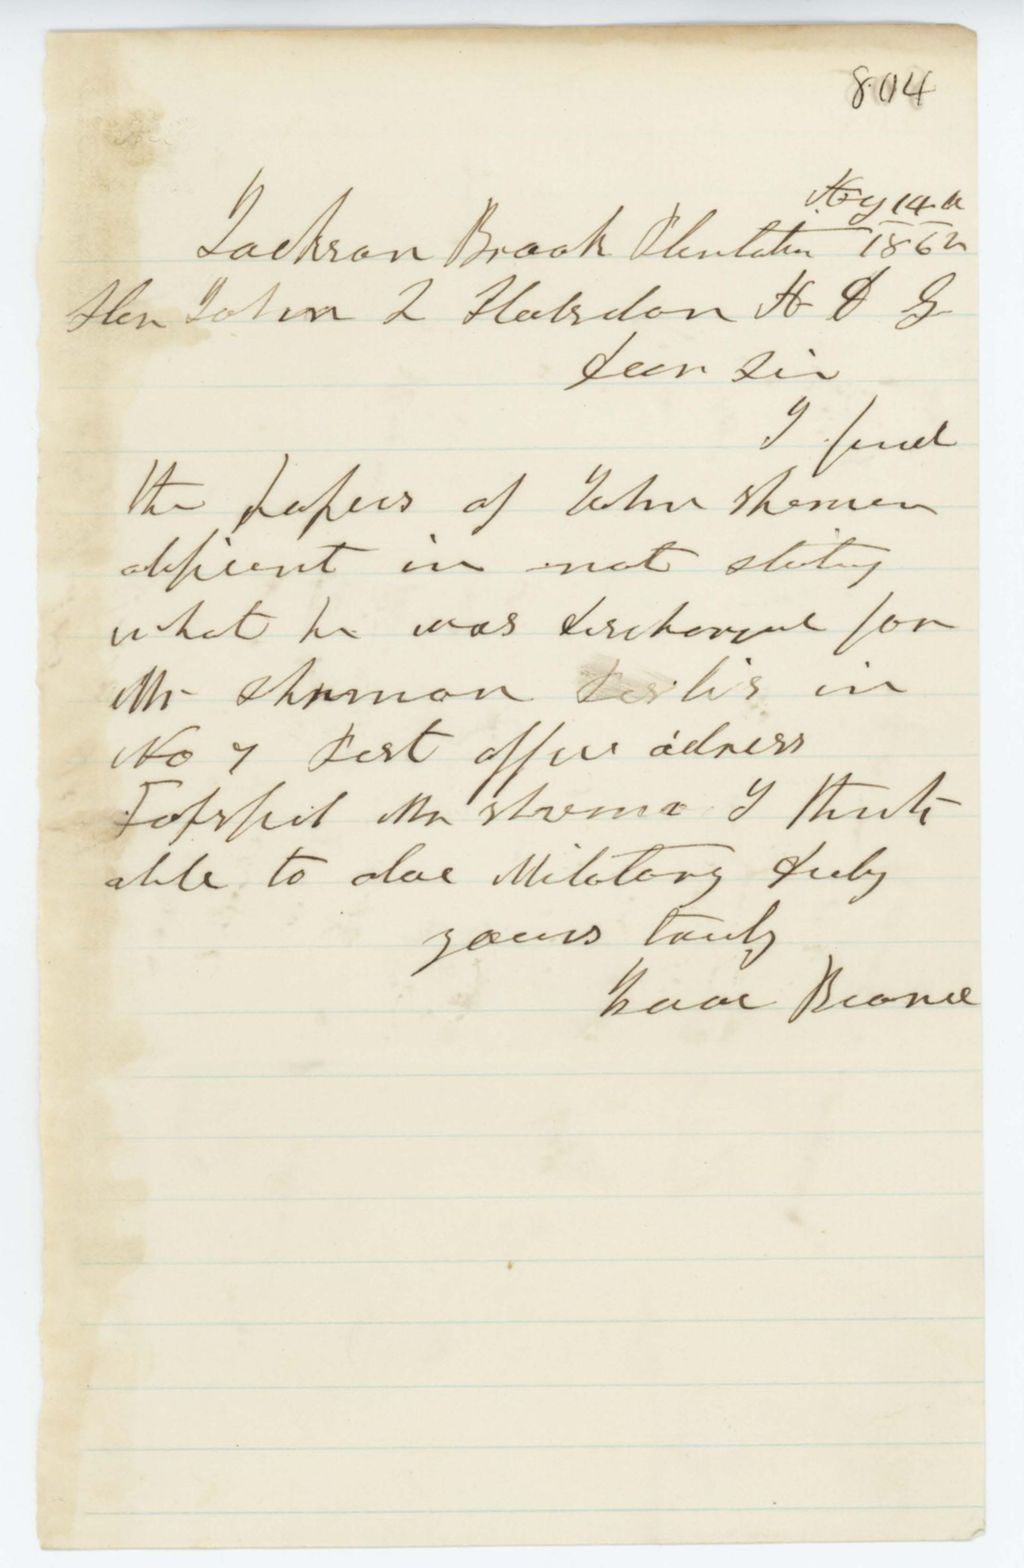 804
14th
Jackson Brook Plantation 1862
Hon John L Hodsdon A A G
Dear Sir
I find
the papers of John Sherman
deficient in not stating
what he was discharged for
Mr Sherman in
No 7 Post office adress
Topsfield Mr I think
able to doe Military duty
yours truly
Isaac